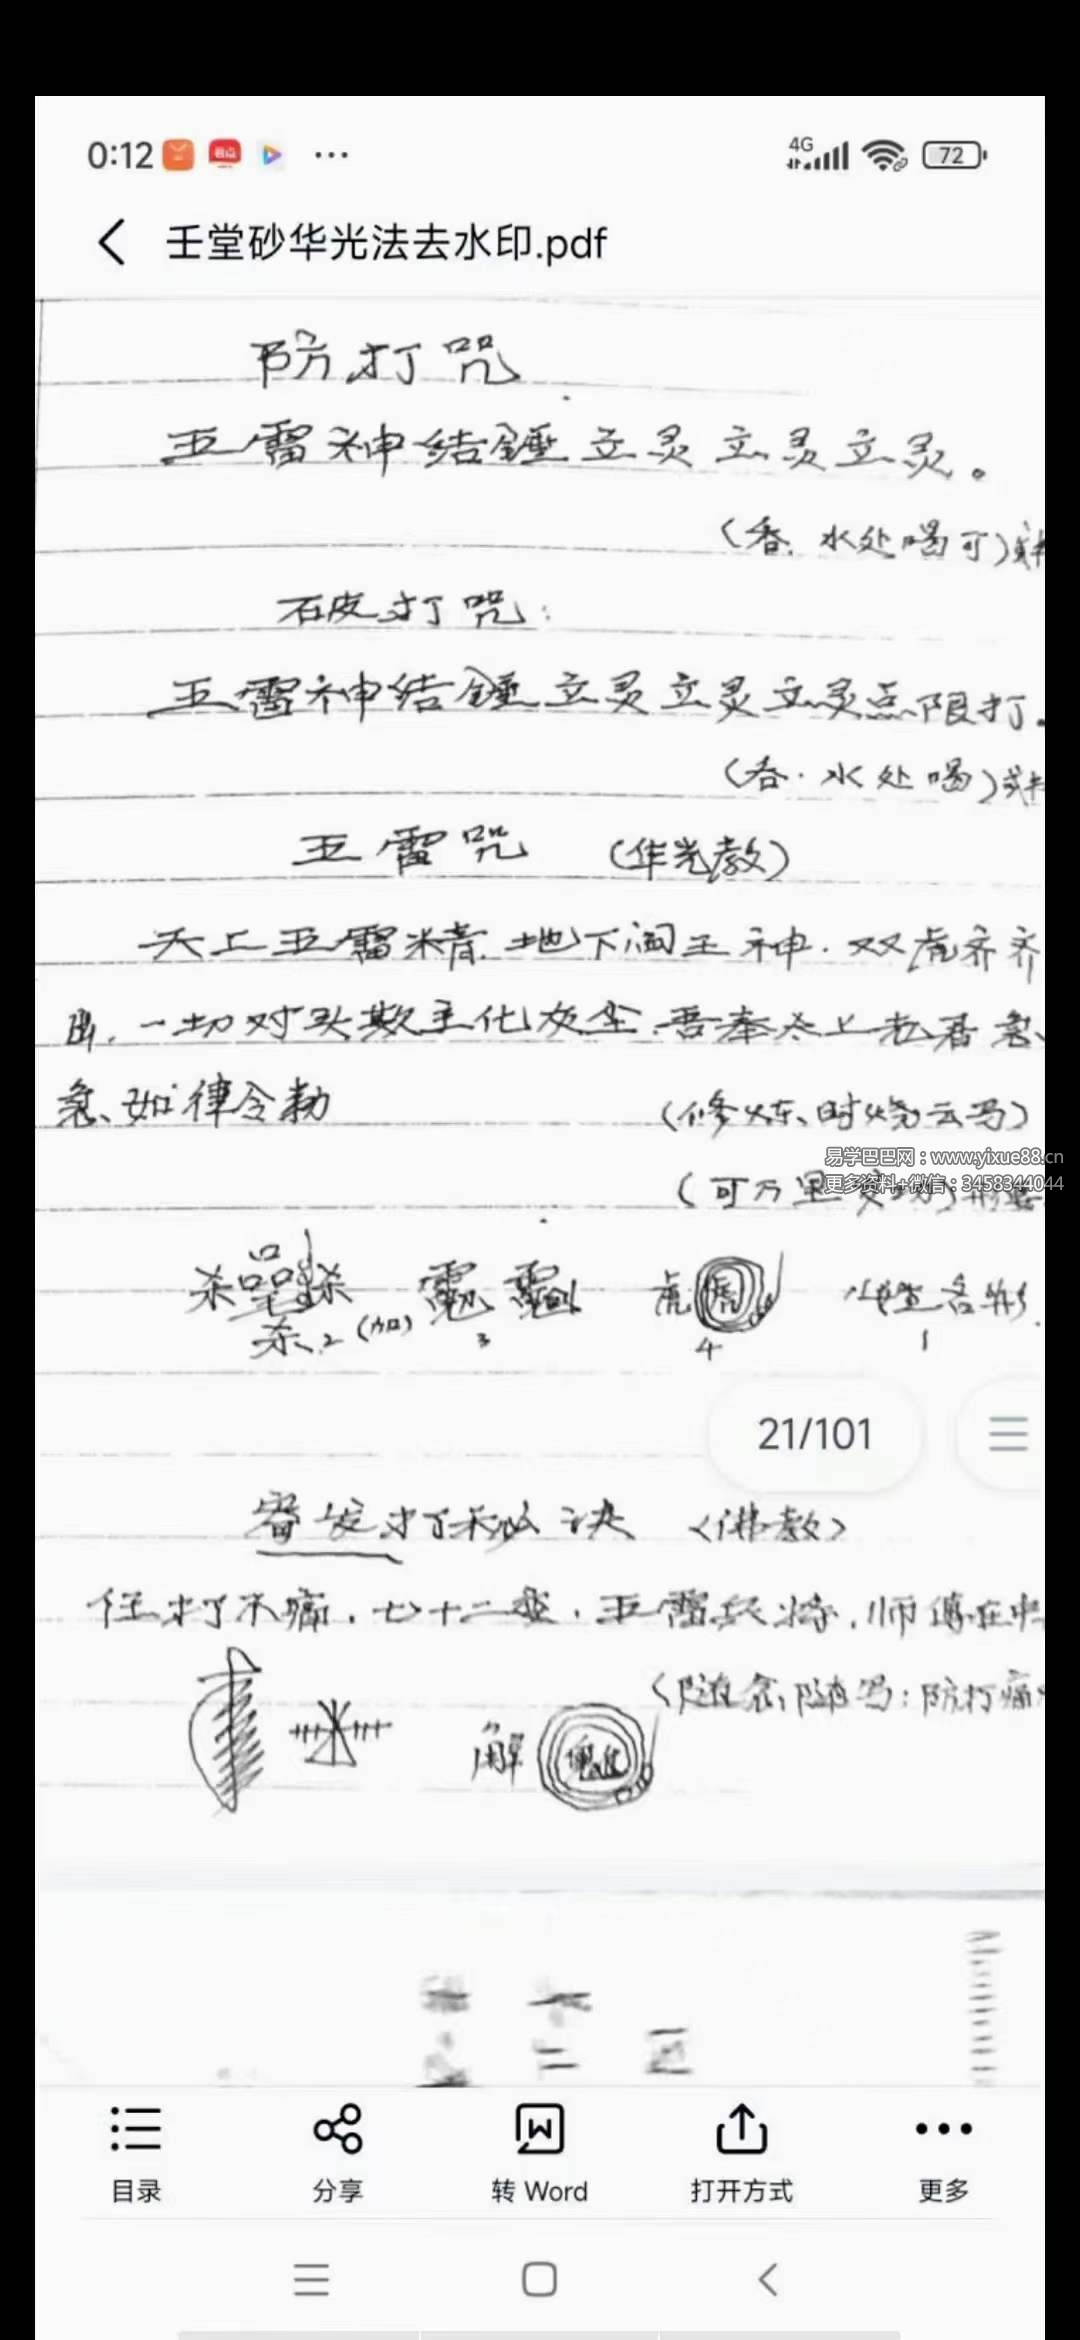 0:12
4G
72
壬堂砂华光法去水印.pdf
防打咒
五雷神结錘立灵立灵立灵。
(香.水处喝可)
破打咒:
五雷神结錘立灵立灵立灵点限打.
(香.水处喝)
五雷咒 (华光教)
天上五雷精.地下阎王神.双虎齐齐
出.一切对头欺主化灰尘.吾奉太上老君急、
急、如律令勅
(修炼、时烧云马)
易学巴巴网:www.yixue88.cn
(可万里
更多资料+微信:3458344044
杀
杀.2 (加)
3
虎
4
1
21/101
打 决 <佛教>
任打不痛.七十二变.五雷兵将.师傅在中
(随念随写:防打痛
解
目录
分享
转 Word
打开方式
更多